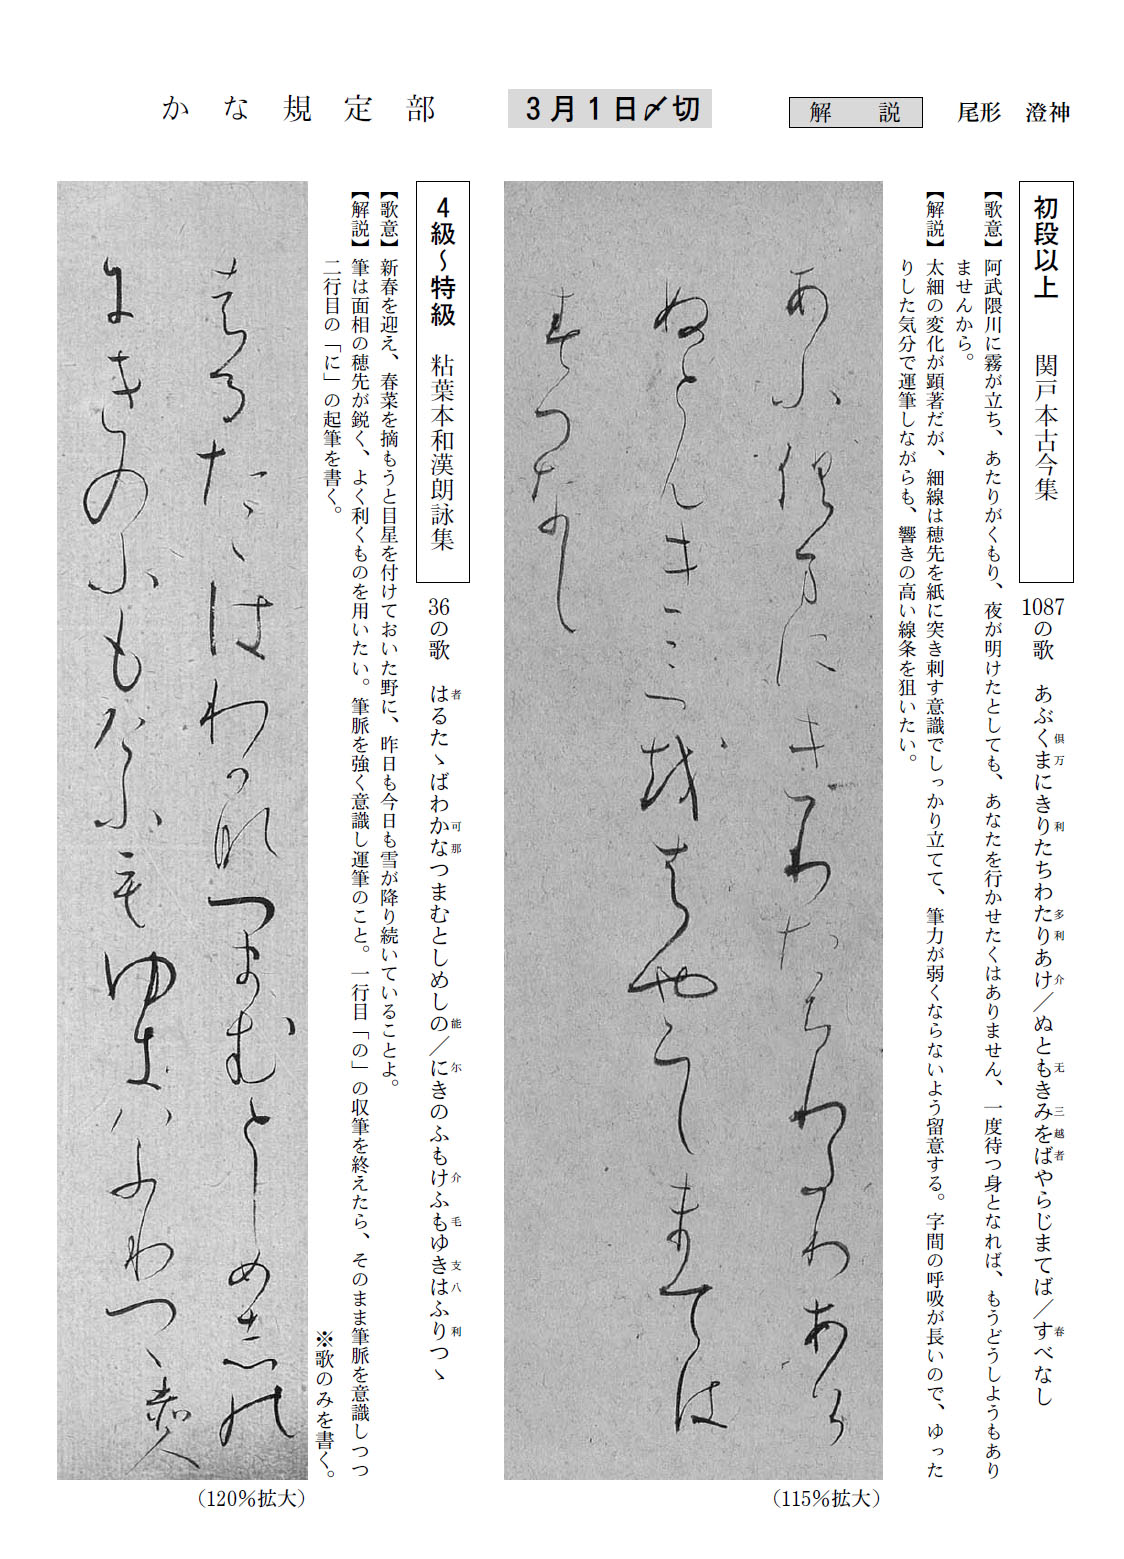 かな規定部　3月1日〆切　解説　尾形　澄神
初段以上　関戸本古今集
1087の歌　あぶくまにきりたちわたりあけ／ぬともきみをばやらじまてば／すべなし
倶万　利　多利　介　无　三越者　春
【歌意】阿武隈川に霧が立ち、あたりがくもり、夜が明けたとしても、あなたを行かせたくはありません、一度待つ身となれば、もうどうしようもあり
ませんから。
【解説】太細の変化が顕著だが、細線は穂先を紙に突き刺す意識でしっかり立てて、筆力が弱くならないよう留意する。字間の呼吸が長いので、ゆった
りした気分で運筆しながらも、響きの高い線条を狙いたい。
（115％拡大）
4級～特級　粘葉本和漢朗詠集
36の歌　はるたゝばわかなつまむとしめしの／にきのふもけふもゆきはふりつゝ
者　可那　能　尓　介　毛　支八　利
【歌意】新春を迎え、春菜を摘もうと目星を付けておいた野に、昨日も今日も雪が降り続いていることよ。
【解説】筆は面相の穂先が鋭く、よく利くものを用いたい。筆脈を強く意識し運筆のこと。一行目「の」の収筆を終えたら、そのまま筆脈を意識しつつ
二行目の「に」の起筆を書く。
※歌のみを書く。
（120％拡大）